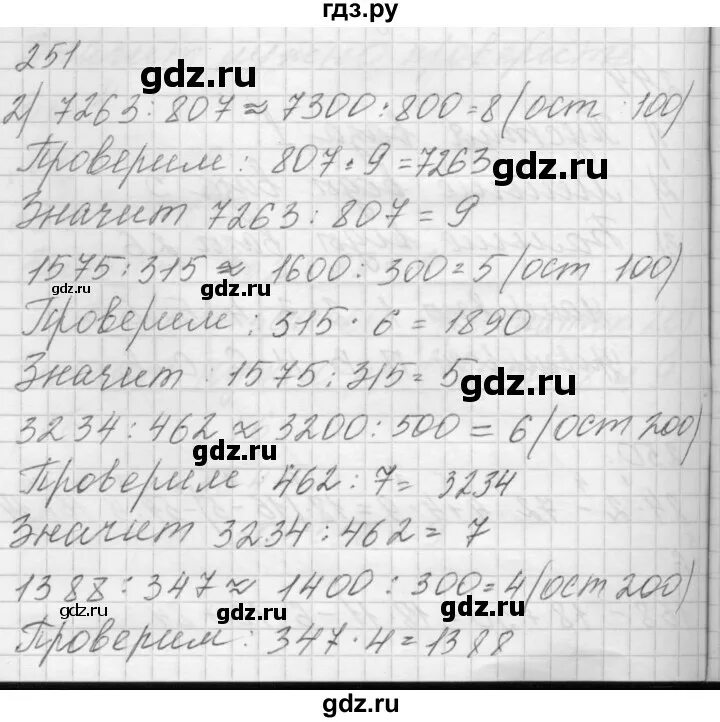 гдз.ру
251
gdz.ru
2) 7263 : 807 ≈ 7300 : 800 = 8 (ост 100)
Проверим : 807 · 9 = 7263
gdz.ru
Значит 7263 : 807 = 9
1575 : 315 ≈ 1600 : 300 = 5 (ост 100)
gdz.ru gdz.ru gdz.ru
Проверим : 315 · 6 = 1890
Значит : 1575 : 315 = 5
gdz.ru
3234 : 462 ≈ 3200 : 500 = 6 (ост 200)
gdz.ru gdz.ru
Проверим 462 : 7 = 3234
Значит 3234 : 462 = 7
1388 : 347 ≈ 1400 : 300 = 4 (ост 200)
gdz.ru gdz.ru gdz.ru
Проверим : 347 · 4 = 1388
gdz.ru